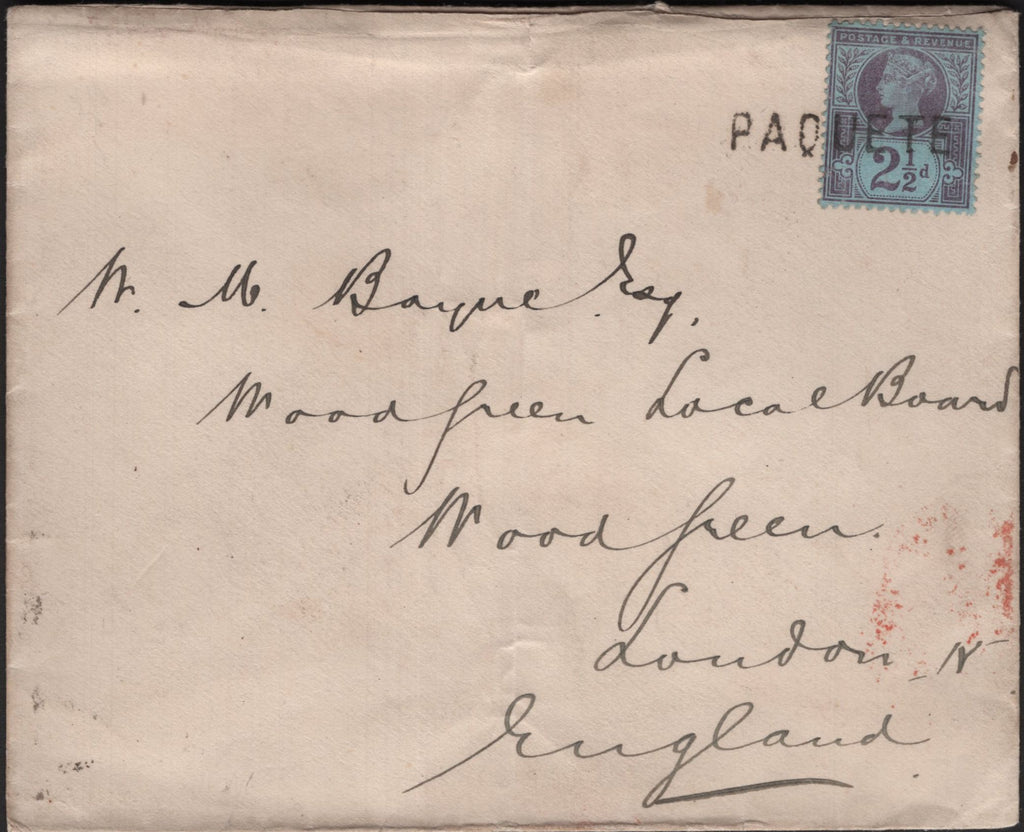 POSTAGE & REVENUE
PAQUETE
2½d
W. M. Bayne Esq.
Wood Green Local Board
Wood Green.
London N
England